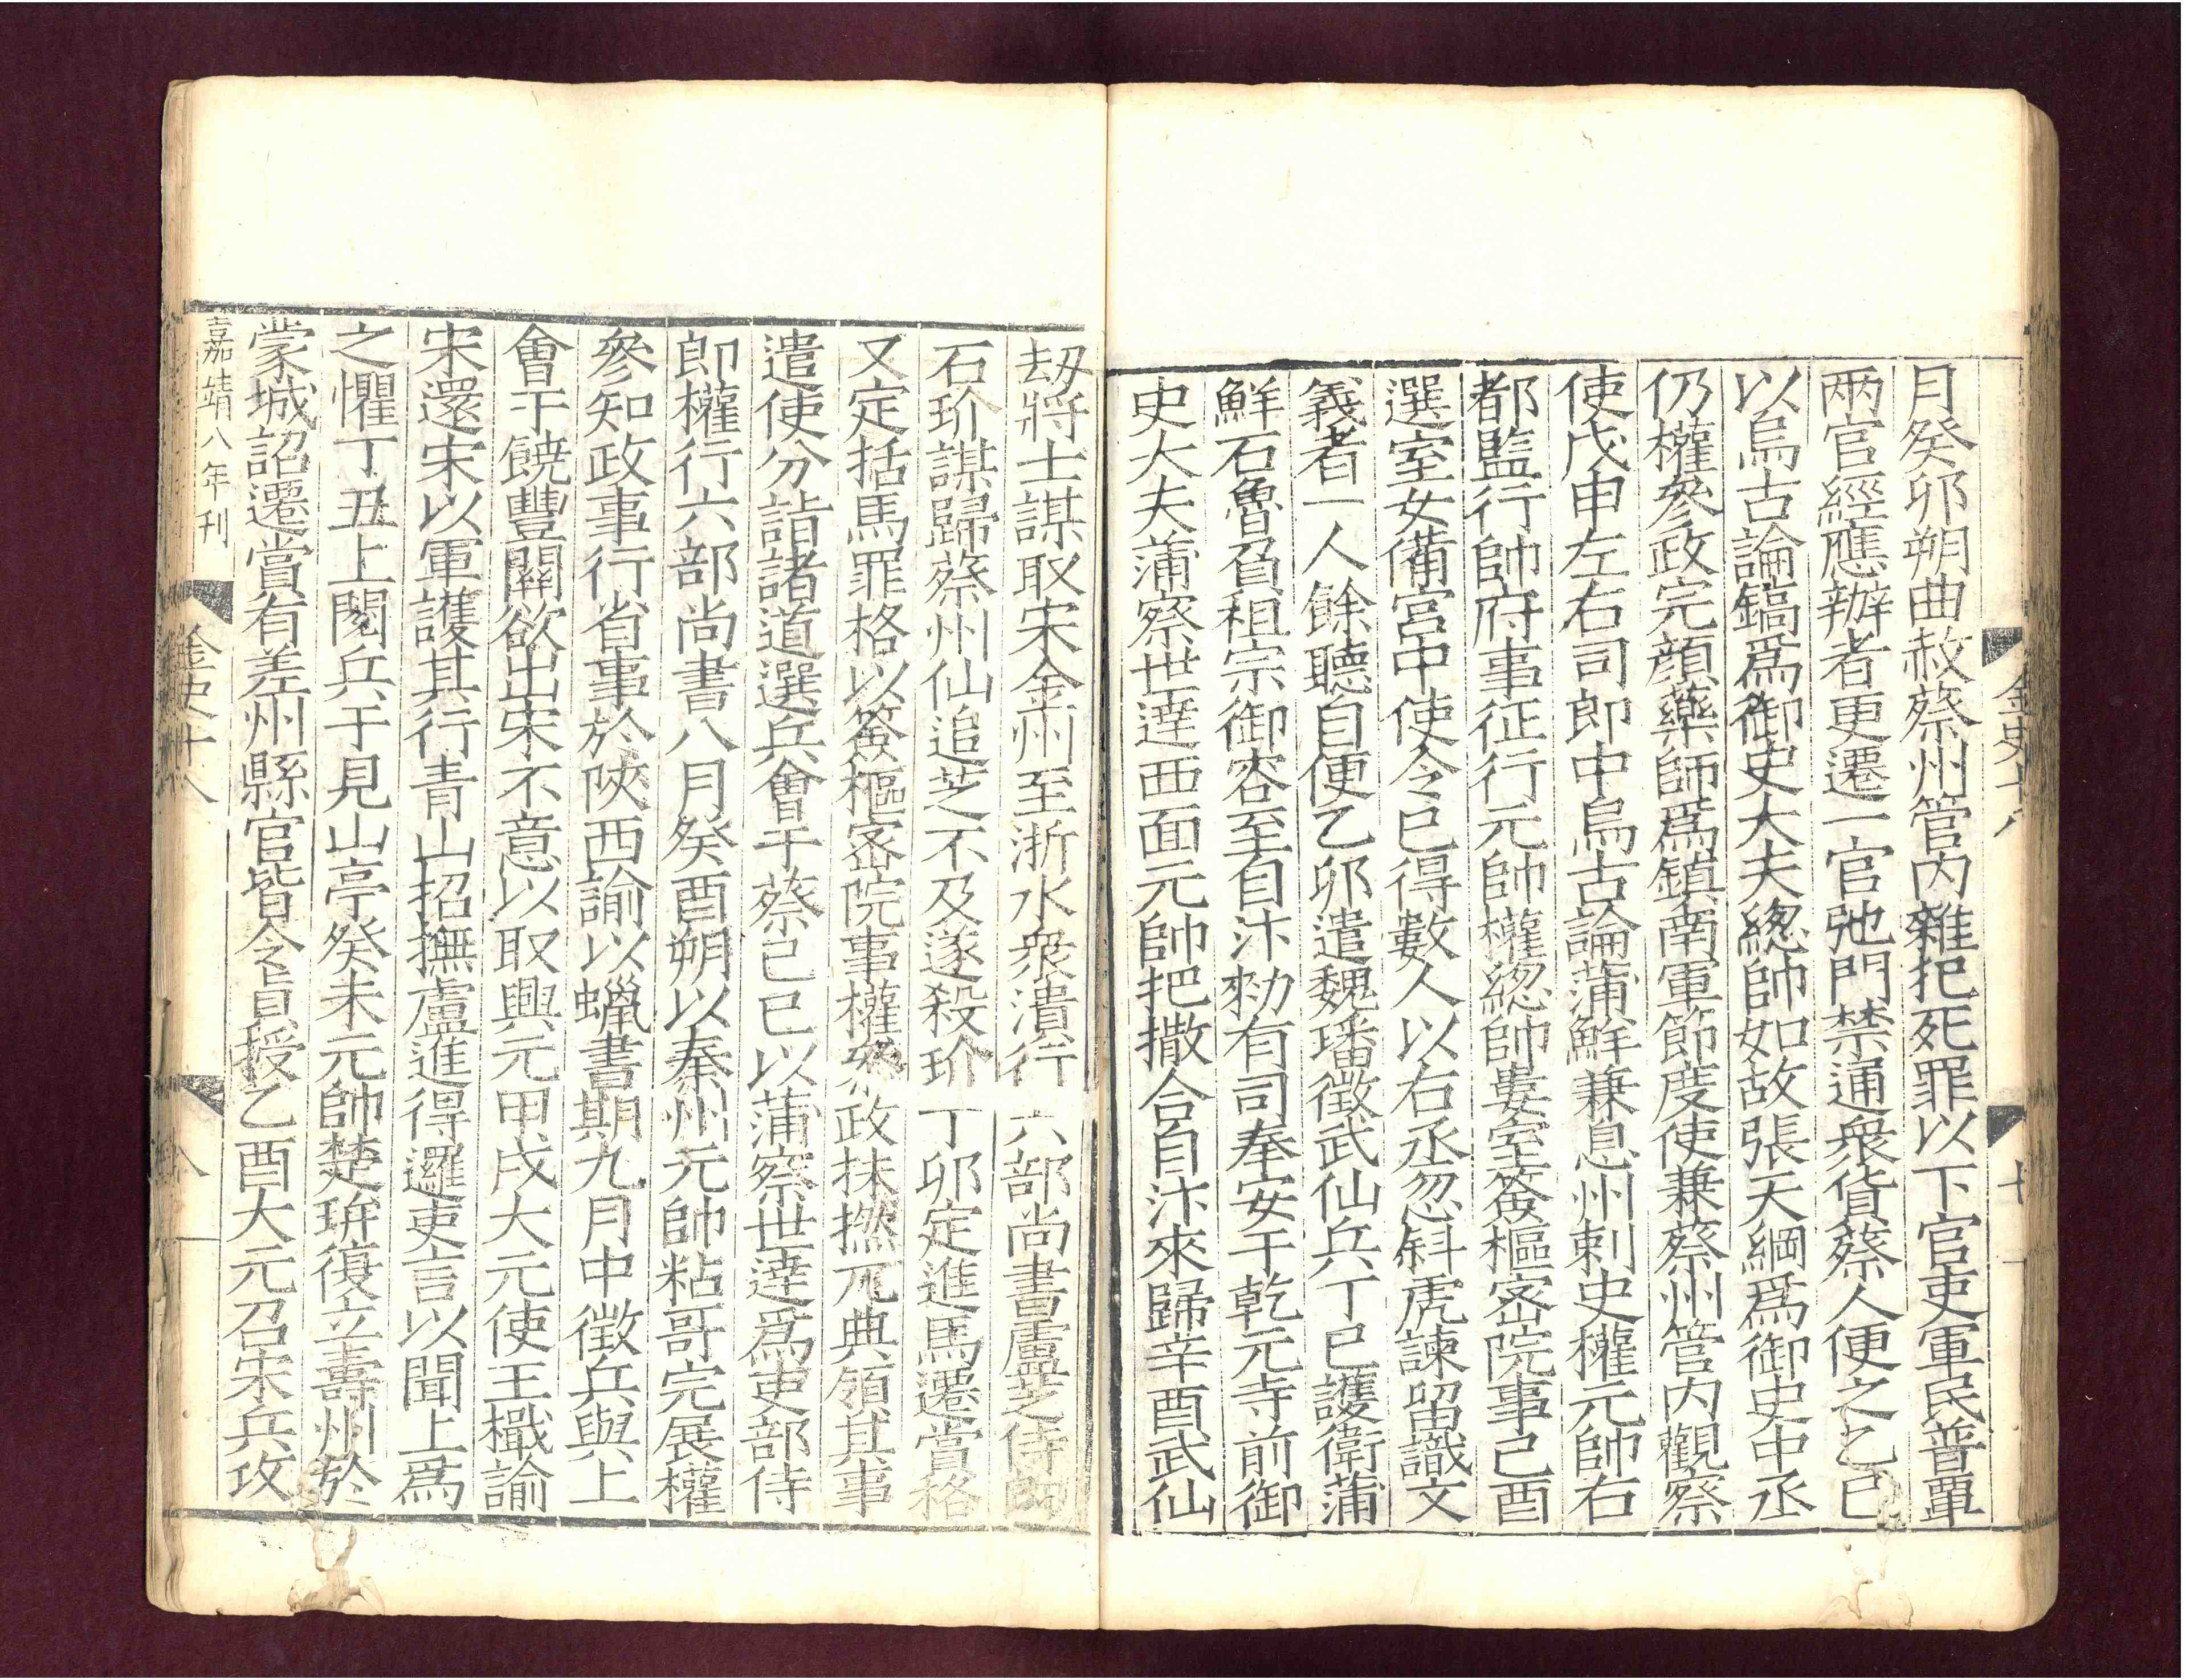 金史十八
十
月癸卯朔曲赦蔡州管内雜犯死罪以下官吏軍民普覃
两官經應辦者更遷一官弛門禁通衆貨蔡人便之乙巳
以烏古論鎬爲御史大夫緫帥如故張天綱爲御史中丞
仍權參政完顔藥師爲鎮南軍節度使兼蔡州管内觀察
使戊申左右司郎中烏古論蒲鮮兼息州刺史權元帥右
都監行帥府事征行元帥權緫帥婁室簽樞宻院事己酉
選室女備宮中使令已得數人以右丞忽斜虎諫留識文
義者一人餘聽自便乙卯遣魏璠徵武仙兵丁巳護衛蒲
鮮石魯負祖宗御容至自汴勑有司奉安于乾元寺前御
史大夫蒲察世逹西面元帥把撒合自汴來歸辛酉武仙
刼將士謀取宋金州至浙水衆潰行六部尚書盧芝侍郎
石玠謀歸蔡州仙追芝不及遂殺玠丁卯定進馬遷賞格
又定括馬罪格以簽樞宻院事權參政抹撚兀典領其事
遣使分詣諸道選兵會于蔡己巳以蒲察世逹爲吏部侍
郎權行六部尚書八月癸酉朔以秦州元帥粘哥完展權
參知政事行省事於陜西諭以蠟書期九月中徵兵與上
會于饒豐關欲出宋不意以取興元甲戌大元使王檝諭
宋還宋以軍護其行青山招撫盧進得邏吏言以聞上爲
之懼丁丑上閱兵于見山亭癸未元帥楚玣復立壽州於
蒙城詔遷賞有差州縣官皆令眞授乙酉大元召宋兵攻
嘉靖八年刊
金史十八